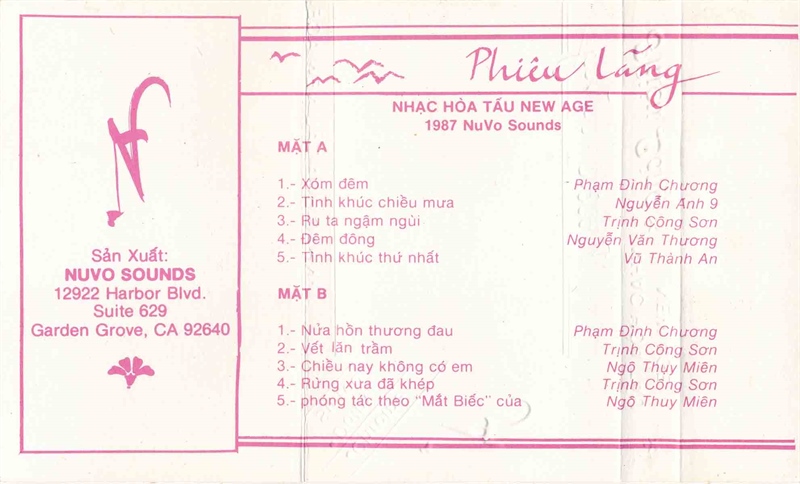 Phiêu Lãng
NHẠC HÒA TẤU NEW AGE
1987 NuVo Sounds
MẶT A
1.- Xóm đêm Phạm Đình Chương
2.- Tình khúc chiều mưa Nguyễn Anh 9
3.- Ru ta ngậm ngùi Trịnh Công Sơn
4.- Đêm đông Nguyễn Văn Thương
5.- Tình khúc thứ nhất Vũ Thành An
MẶT B
1.- Nửa hồn thương đau Phạm Đình Chương
2.- Vết lăn trầm Trịnh Công Sơn
3.- Chiều nay không có em Ngô Thụy Miên
4.- Rừng xưa đã khép Trịnh Công Sơn
5.- phóng tác theo "Mắt Biếc" của Ngô Thụy Miên
Sản Xuất:
NUVO SOUNDS
12922 Harbor Blvd.
Suite 629
Garden Grove, CA 92640